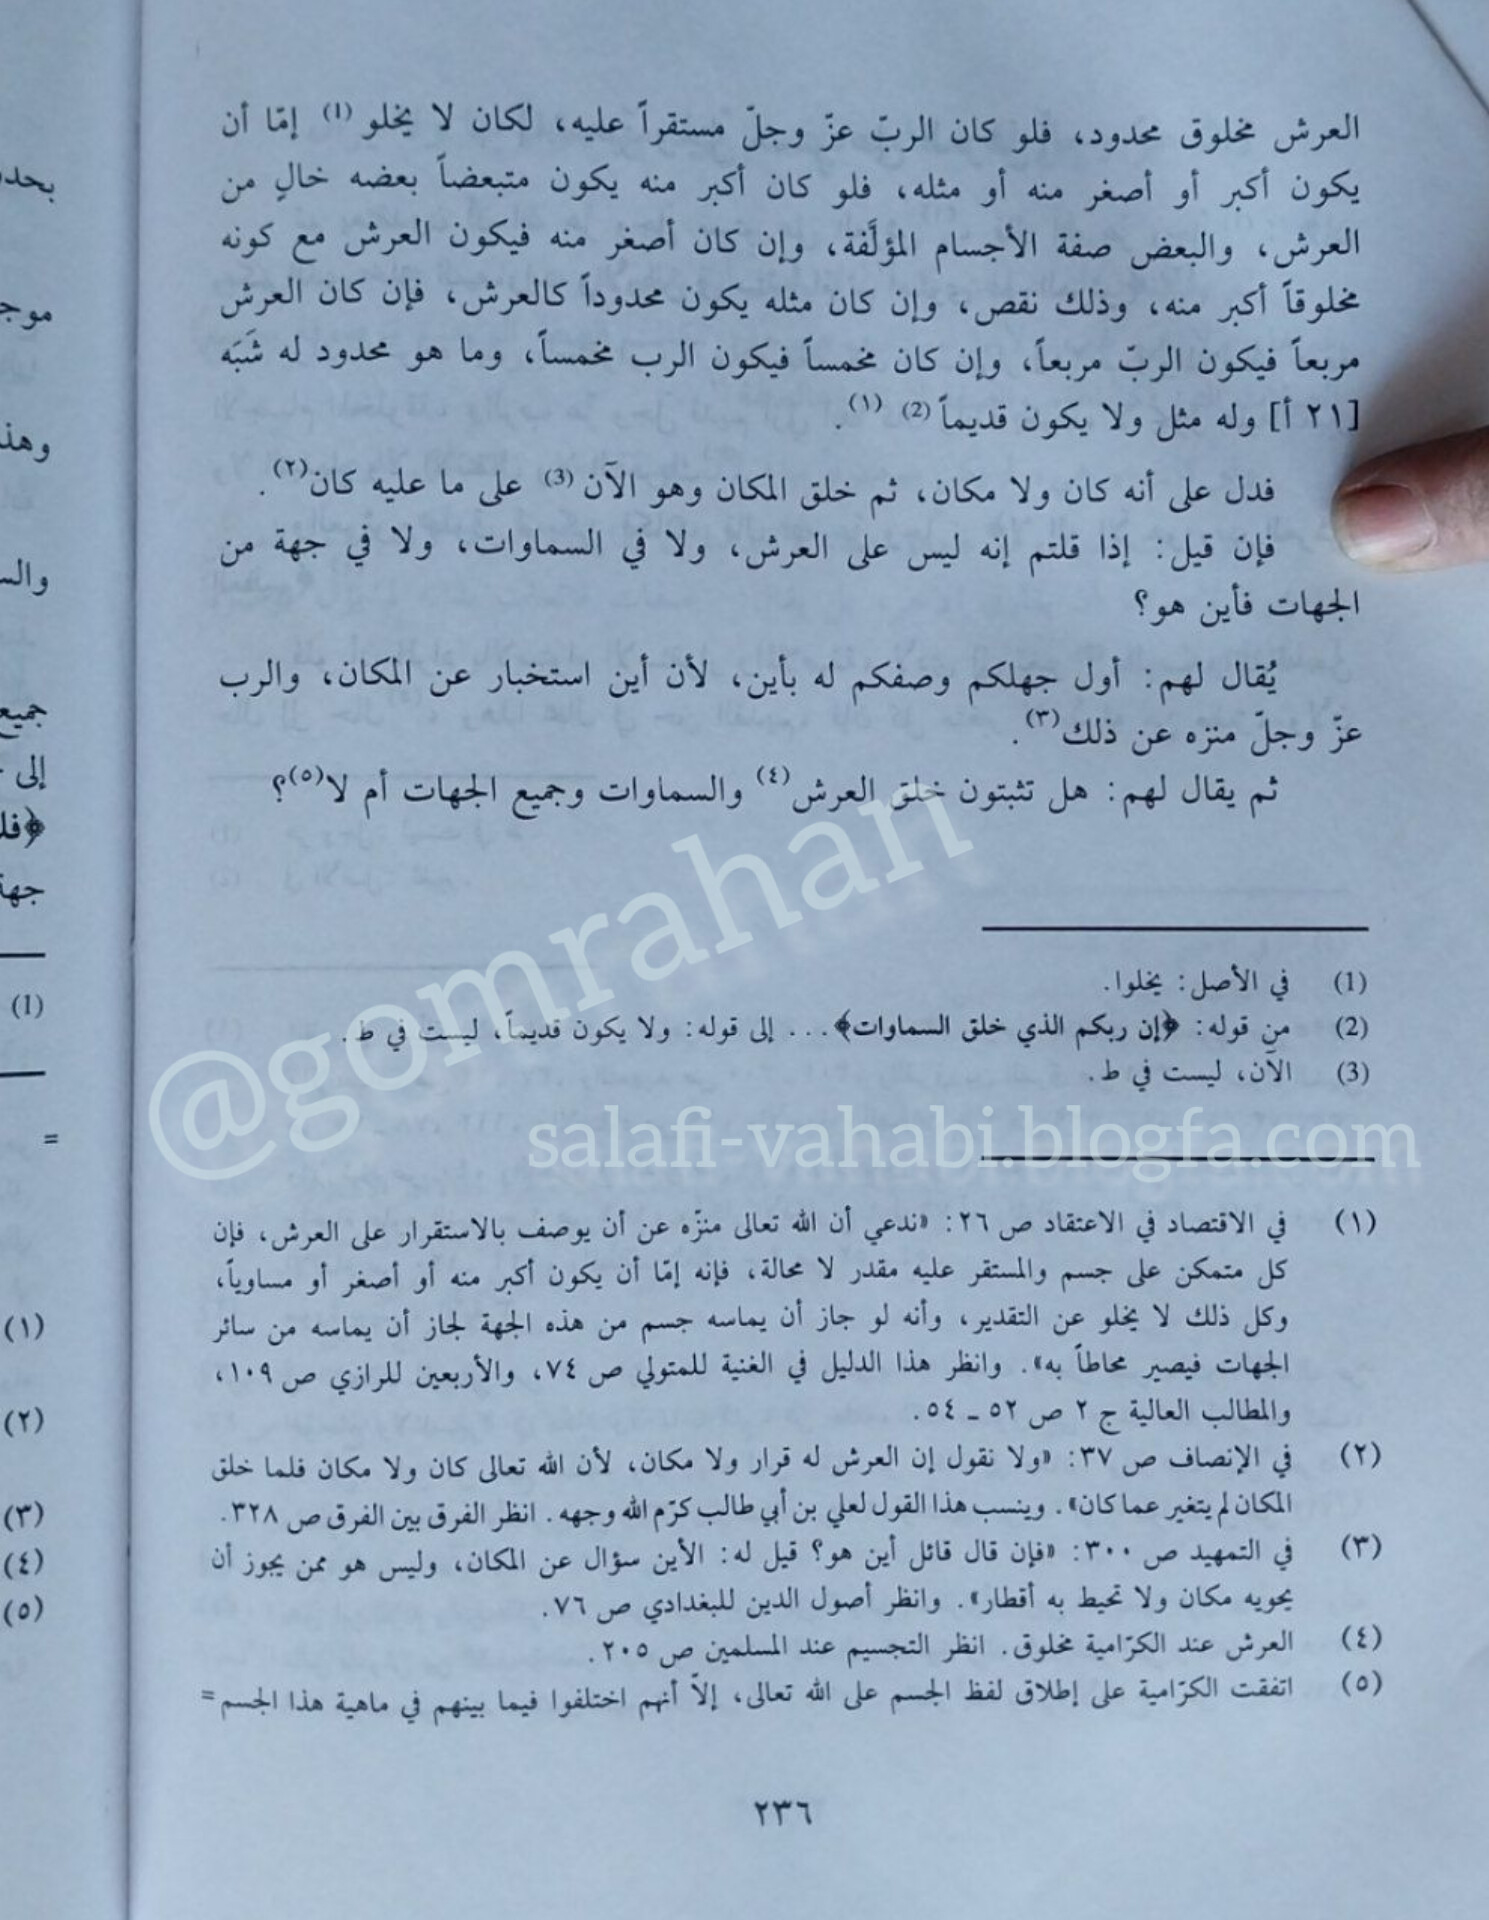 العرش مخلوق محدود، فلو كان الربّ عزّ وجلّ مستقراً عليه، لكان لا يخلو (1) إمّا أن
يكون أكبر أو أصغر منه أو مثله، فلو كان أكبر منه يكون متبعضاً بعضه خالٍ من
العرش، والبعض صفة الأجسام المؤلَّفة، وإن كان أصغر منه فيكون العرش مع كونه
مخلوقاً أكبر منه، وذلك نقص، وإن كان مثله يكون محدوداً كالعرش، فإن كان العرش
مربعاً فيكون الربّ مربعاً، وإن كان مخمساً فيكون الرب مخمساً، وما هو محدود له شَبَه
[٢١ أ] وله مثل ولا يكون قديماً (2) (١).
فدل على أنه كان ولا مكان، ثم خلق المكان وهو الآن (3) على ما عليه كان(٢).
فإن قيل: إذا قلتم إنه ليس على العرش، ولا في السماوات، ولا في جهة من
الجهات فأين هو؟
يُقال لهم: أول جهلكم وصفكم له بأين، لأن أين استخبار عن المكان، والرب
عزّ وجلّ منزه عن ذلك(٣).
ثم يقال لهم: هل تثبتون خلق العرش(٤) والسماوات وجميع الجهات أم لا(٥)؟
(1) في الأصل: يخلوا.
(2) من قوله: ﴿إن ربكم الذي خلق السماوات﴾... إلى قوله: ولا يكون قديماً، ليست في ط.
(3) الآن، ليست في ط.
(١) في الاقتصاد في الاعتقاد ص ٢٦: «ندعي أن الله تعالى منزّه عن أن يوصف بالاستقرار على العرش، فإن
كل متمكن على جسم والمستقر عليه مقدر لا محالة، فإنه إمّا أن يكون أكبر منه أو أصغر أو مساوياً،
وكل ذلك لا يخلو عن التقدير، وأنه لو جاز أن يماسه جسم من هذه الجهة لجاز أن يماسه من سائر
الجهات فيصير محاطاً به». وانظر هذا الدليل في الغنية للمتولي ص ٧٤، والأربعين للرازي ص ١٠٩،
والمطالب العالية ج ٢ ص ٥٢ ـ ٥٤.
(٢) في الإنصاف ص ٣٧: «ولا نقول إن العرش له قرار ولا مكان، لأن الله تعالى كان ولا مكان فلما خلق
المكان لم يتغير عما كان». وينسب هذا القول لعلي بن أبي طالب كرّم الله وجهه. انظر الفرق بين الفرق ص ٣٢٨.
(٣) في التمهيد ص ٣٠٠: «فإن قال قائل أين هو؟ قيل له: الأين سؤال عن المكان، وليس هو ممن يجوز أن
يحويه مكان ولا تحيط به أقطار». وانظر أصول الدين للبغدادي ص ٧٦.
(٤) العرش عند الكرّامية مخلوق. انظر التجسيم عند المسلمين ص ٢٠٥.
(٥) اتفقت الكرّامية على إطلاق لفظ الجسم على الله تعالى، إلاّ أنهم اختلفوا فيما بينهم في ماهية هذا الجسم=
٢٣٦
@gomrahan
salafi-vahabi.blogfa.com
موج
وهذ
جميع
إلى
جهة
(1)
=
(١)
(٢)
(٣)
(٤)
(٥)